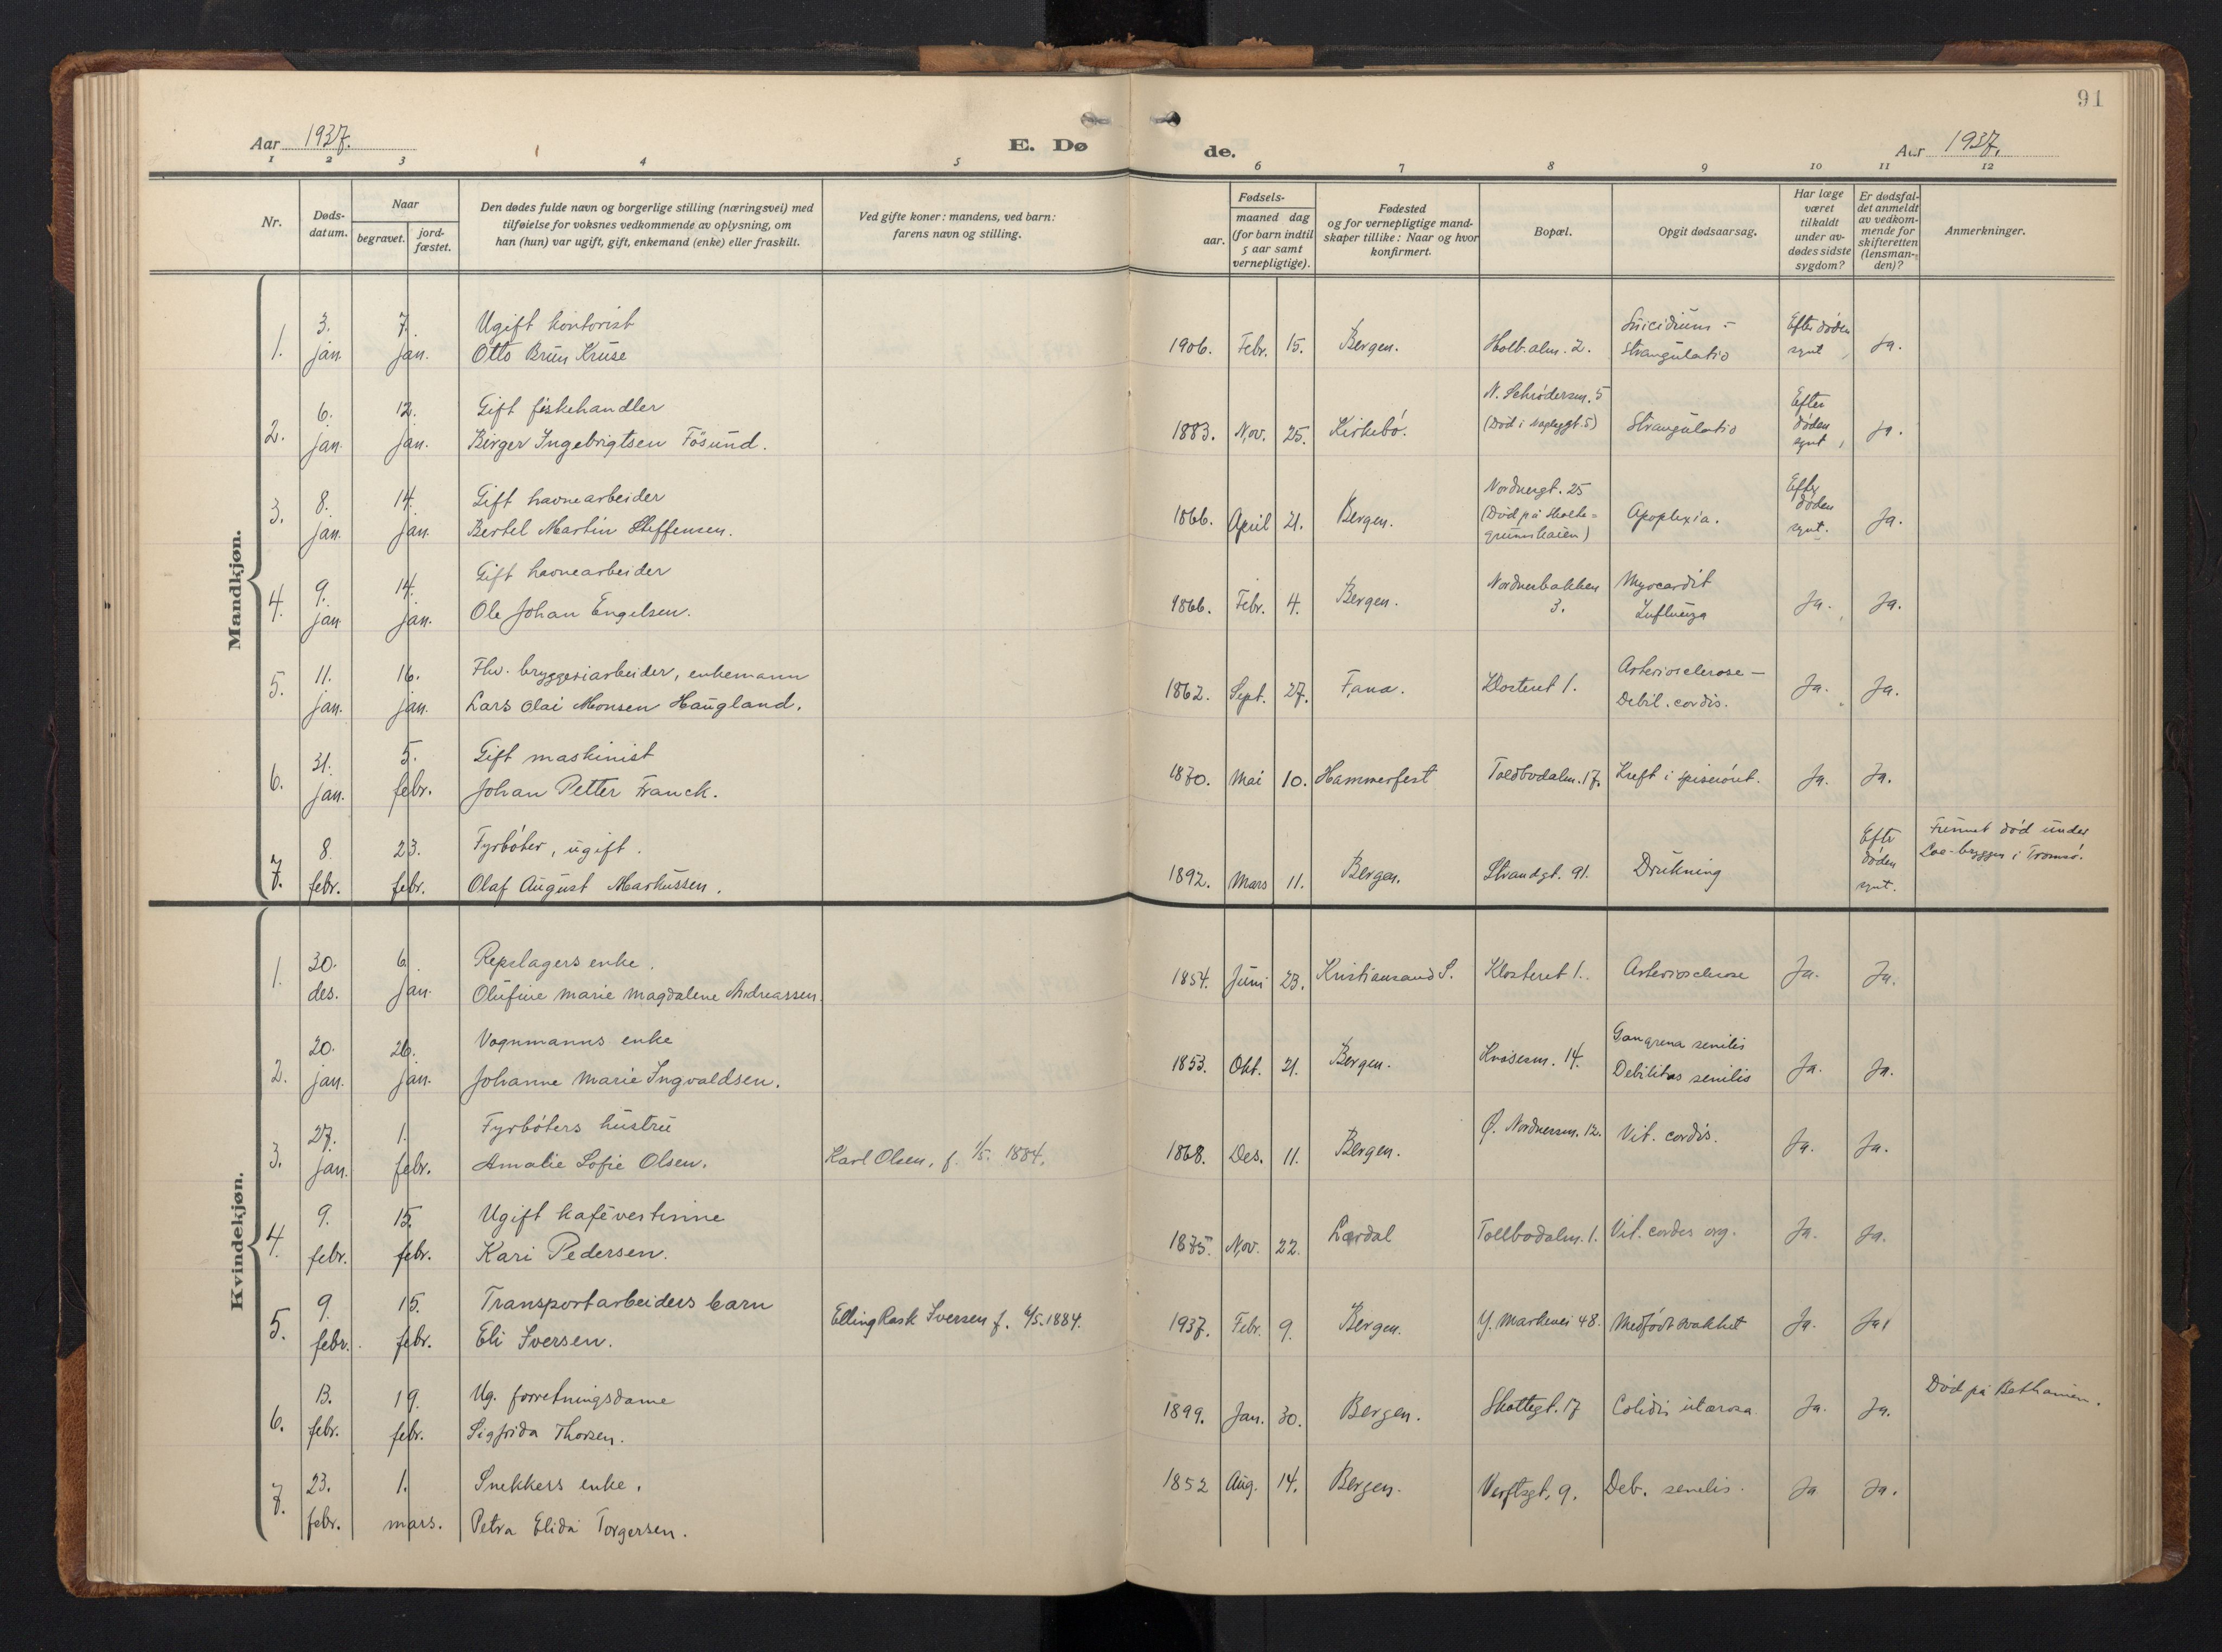 91
Aar 1937.
E. Dø
de.
Aar 1937.
1 2 3 4 5 6 7 8 9 10 11 12
Nr.
Døds-
datum.
Naar
begravet.
jord-
fæstet.
Den dødes fulde navn og borgerlige stilling (næringsvei) med
tilføielse for voksnes vedkommende av oplysning, om
han (hun) var ugift, gift, enkemand (enke) eller fraskilt.
Ved gifte koner: mandens, ved barn:
farens navn og stilling.
Fødsels-
aar.
maaned dag
(for barn indtil
5 aar samt
vernepligtige).
Fødested
og for vernepligtige mand-
skaper tillike: Naar og hvor
konfirmert.
Bopæl.
Opgit dødsaarsag.
Har læge
været
tilkaldt
under av-
dødes sidste
sygdom?
Er dødsfal-
det anmeldt
av vedkom-
mende for
skifteretten
(lensman-
den)?
Anmerkninger.
Mandkjøn.
1. 3. jan. 7. jan.
Ugift kontorist
Otto Brun Kruse
1906. Febr. 15. Bergen. Holb. alm. 2.
Suicidium -
Strangulatio
Efter døden
synt
Ja.
2. 6. jan. 12. jan.
Gift fiskehandler
Birger Ingebrigtsen Fösund.
1883. Nov. 25. Kirkebö.
N. Schrödersm. 5
Strangulatio
Efter
døden
synt
Ja.
3. 8. jan. 14. jan.
Gift havnearbeider
Bertel Martin Steffensen.
1866. April 21. Bergen.
Nordnesgt. 25
(Död på Skolte-
grunnskaien)
Apoplexia.
Efter
døden
synt.
Ja.
4. 9. jan 14. jan.
Gift havnearbeider
Ole Johan Engelsen.
1866. Febr. 4. Bergen.
Nordnesbakken
3.
Myocardit
Influenza
Ja. Ja.
5. 11. jan. 16. jan.
Fhv. bryggeriarbeider, enkemann
Lars Olai Monsen Haugland.
1862. Sept. 27. Fana. Klosteret 1.
Arteriosclerose -
Debil. cordis.
Ja. Ja.
6. 31. jan. 5. febr.
Gift maskinist
Johan Petter Franck.
1870. Mai 10. Hammerfest Toldbodalm. 17. Kreft i spiserört. Ja. Ja.
7. 8. febr. 23. febr.
Fyrböter, ugift.
Olaf August Markussen.
1892. Mars 11. Bergen. Strandgt. 91. Drukning
Efter
døden
synt.
Funnet död under
bryggen i Tromsö.
Kvindekjøn.
1. 30. des. 6. jan.
Repslagers enke.
Olufine Marie Magdalene Andreassen.
1854. Juni 23. Kristiansand S. Klosteret 1. Arteriosclerose Ja. Ja.
2. 20. jan. 26. jan.
Vognmanns enke
Johanne Marie Ingvaldsen.
1853. Okt. 21. Bergen. Knösesm. 14.
Gangrena senilis
Debilitas senilis
Ja. Ja.
3. 27. jan. 1. febr.
Fyrböters hustru
Amalie Sofie Olsen.
Karl Olsen, f. 1/5. 1884.
1868. Des. 11. Bergen. Ø. Nordnessm. 12. Vit. cordis. Ja. Ja.
4. 9. febr. 15. febr.
Ugift kafévertinne
Kari Pedersen.
1875. Nov. 22. Lærdal Tollbodalm. 1. Vit. cordis org. Ja. Ja.
5. 9. febr. 15. febr.
Transportarbeiders barn
Eli Iversen.
Elling Rask Iversen f. 4/5. 1884.
1937. Febr. 9. Bergen. Y. Markevei 48. Medfödt svakhet Ja. Ja.
6. 13. febr. 19. febr.
Ug. forretningsdame
Sigfrida Thorsen.
1899. Jan. 30. Bergen. Skottegt. 17 Colidis Ja. Ja.
Död på Bethanien.
7. 23. febr. 1. mars.
Snekkers enke.
Petra Elida Torgersen.
1852 Aug. 14. Bergen. Verftsgt. 9. Deb. senilis. Ja Ja.